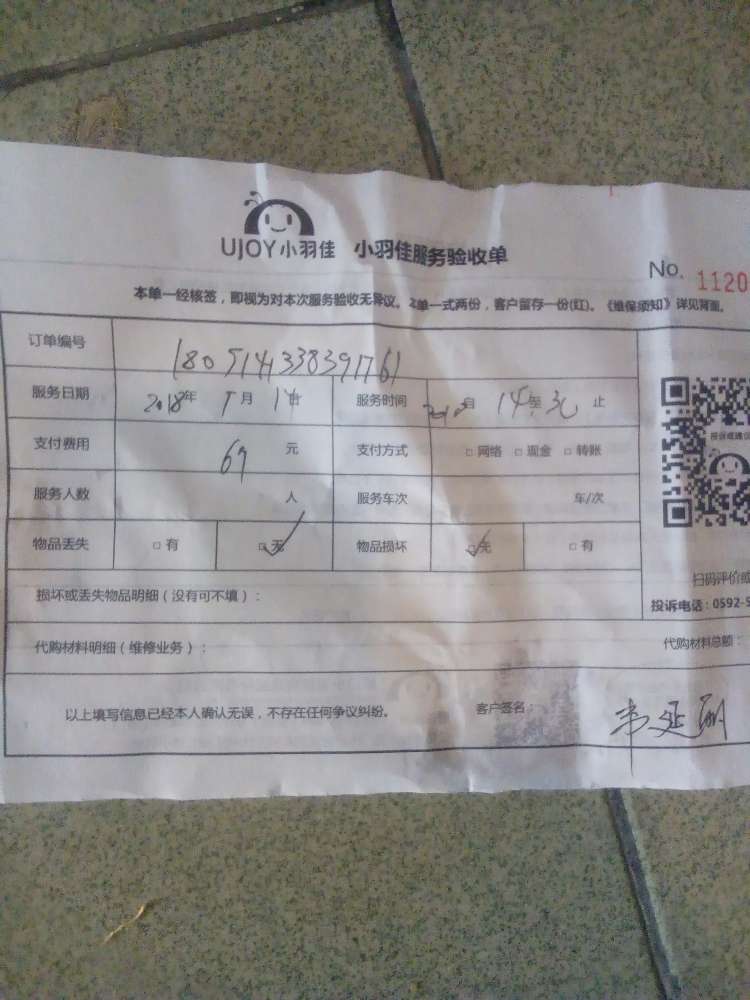 UJOY小羽佳 小羽佳服务验收单
No. 1120
本单一经核签，即视为对本次服务验收无异议。本单一式两份，客户留存一份(红)。《维保须知》详见背面。
订单编号 1805141338391761
服务日期 2018年 5月 14日 服务时间 自 14至 止
支付费用 69 元 支付方式 □ 网络 □ 现金 □ 转账
服务人数 人 服务车次 车/次
投诉或建议
物品丢失 □ 有 □ 无 物品损坏 □ 无 □ 有
扫码评价或
损坏或丢失物品明细（没有可不填）：
投诉电话：0592-5
代购材料明细（维修业务）： 代购材料总额：
以上填写信息已经本人确认无误，不存在任何争议纠纷。 客户签名：